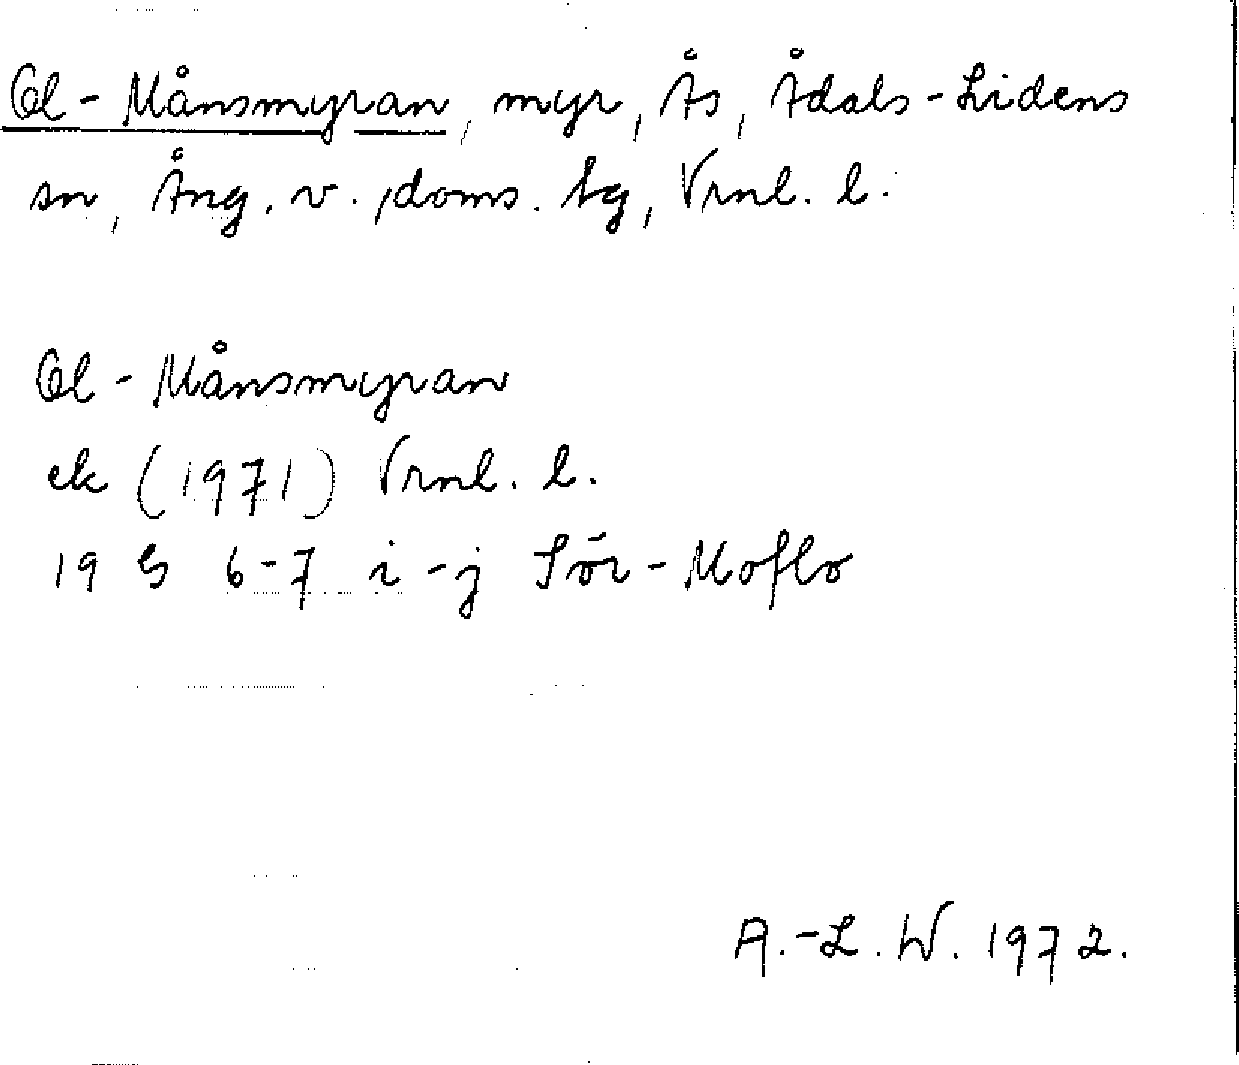 Ol-Månsmyran, myr, Ås, Ådals-Lidens
sn, Ång. v. doms. tg, Vrnl. l.
Ol-Månsmyran
ek (1971) Vrnl. l.
19 G 6-7 i-j Sör-Moflo
A.-L. W. 1972.